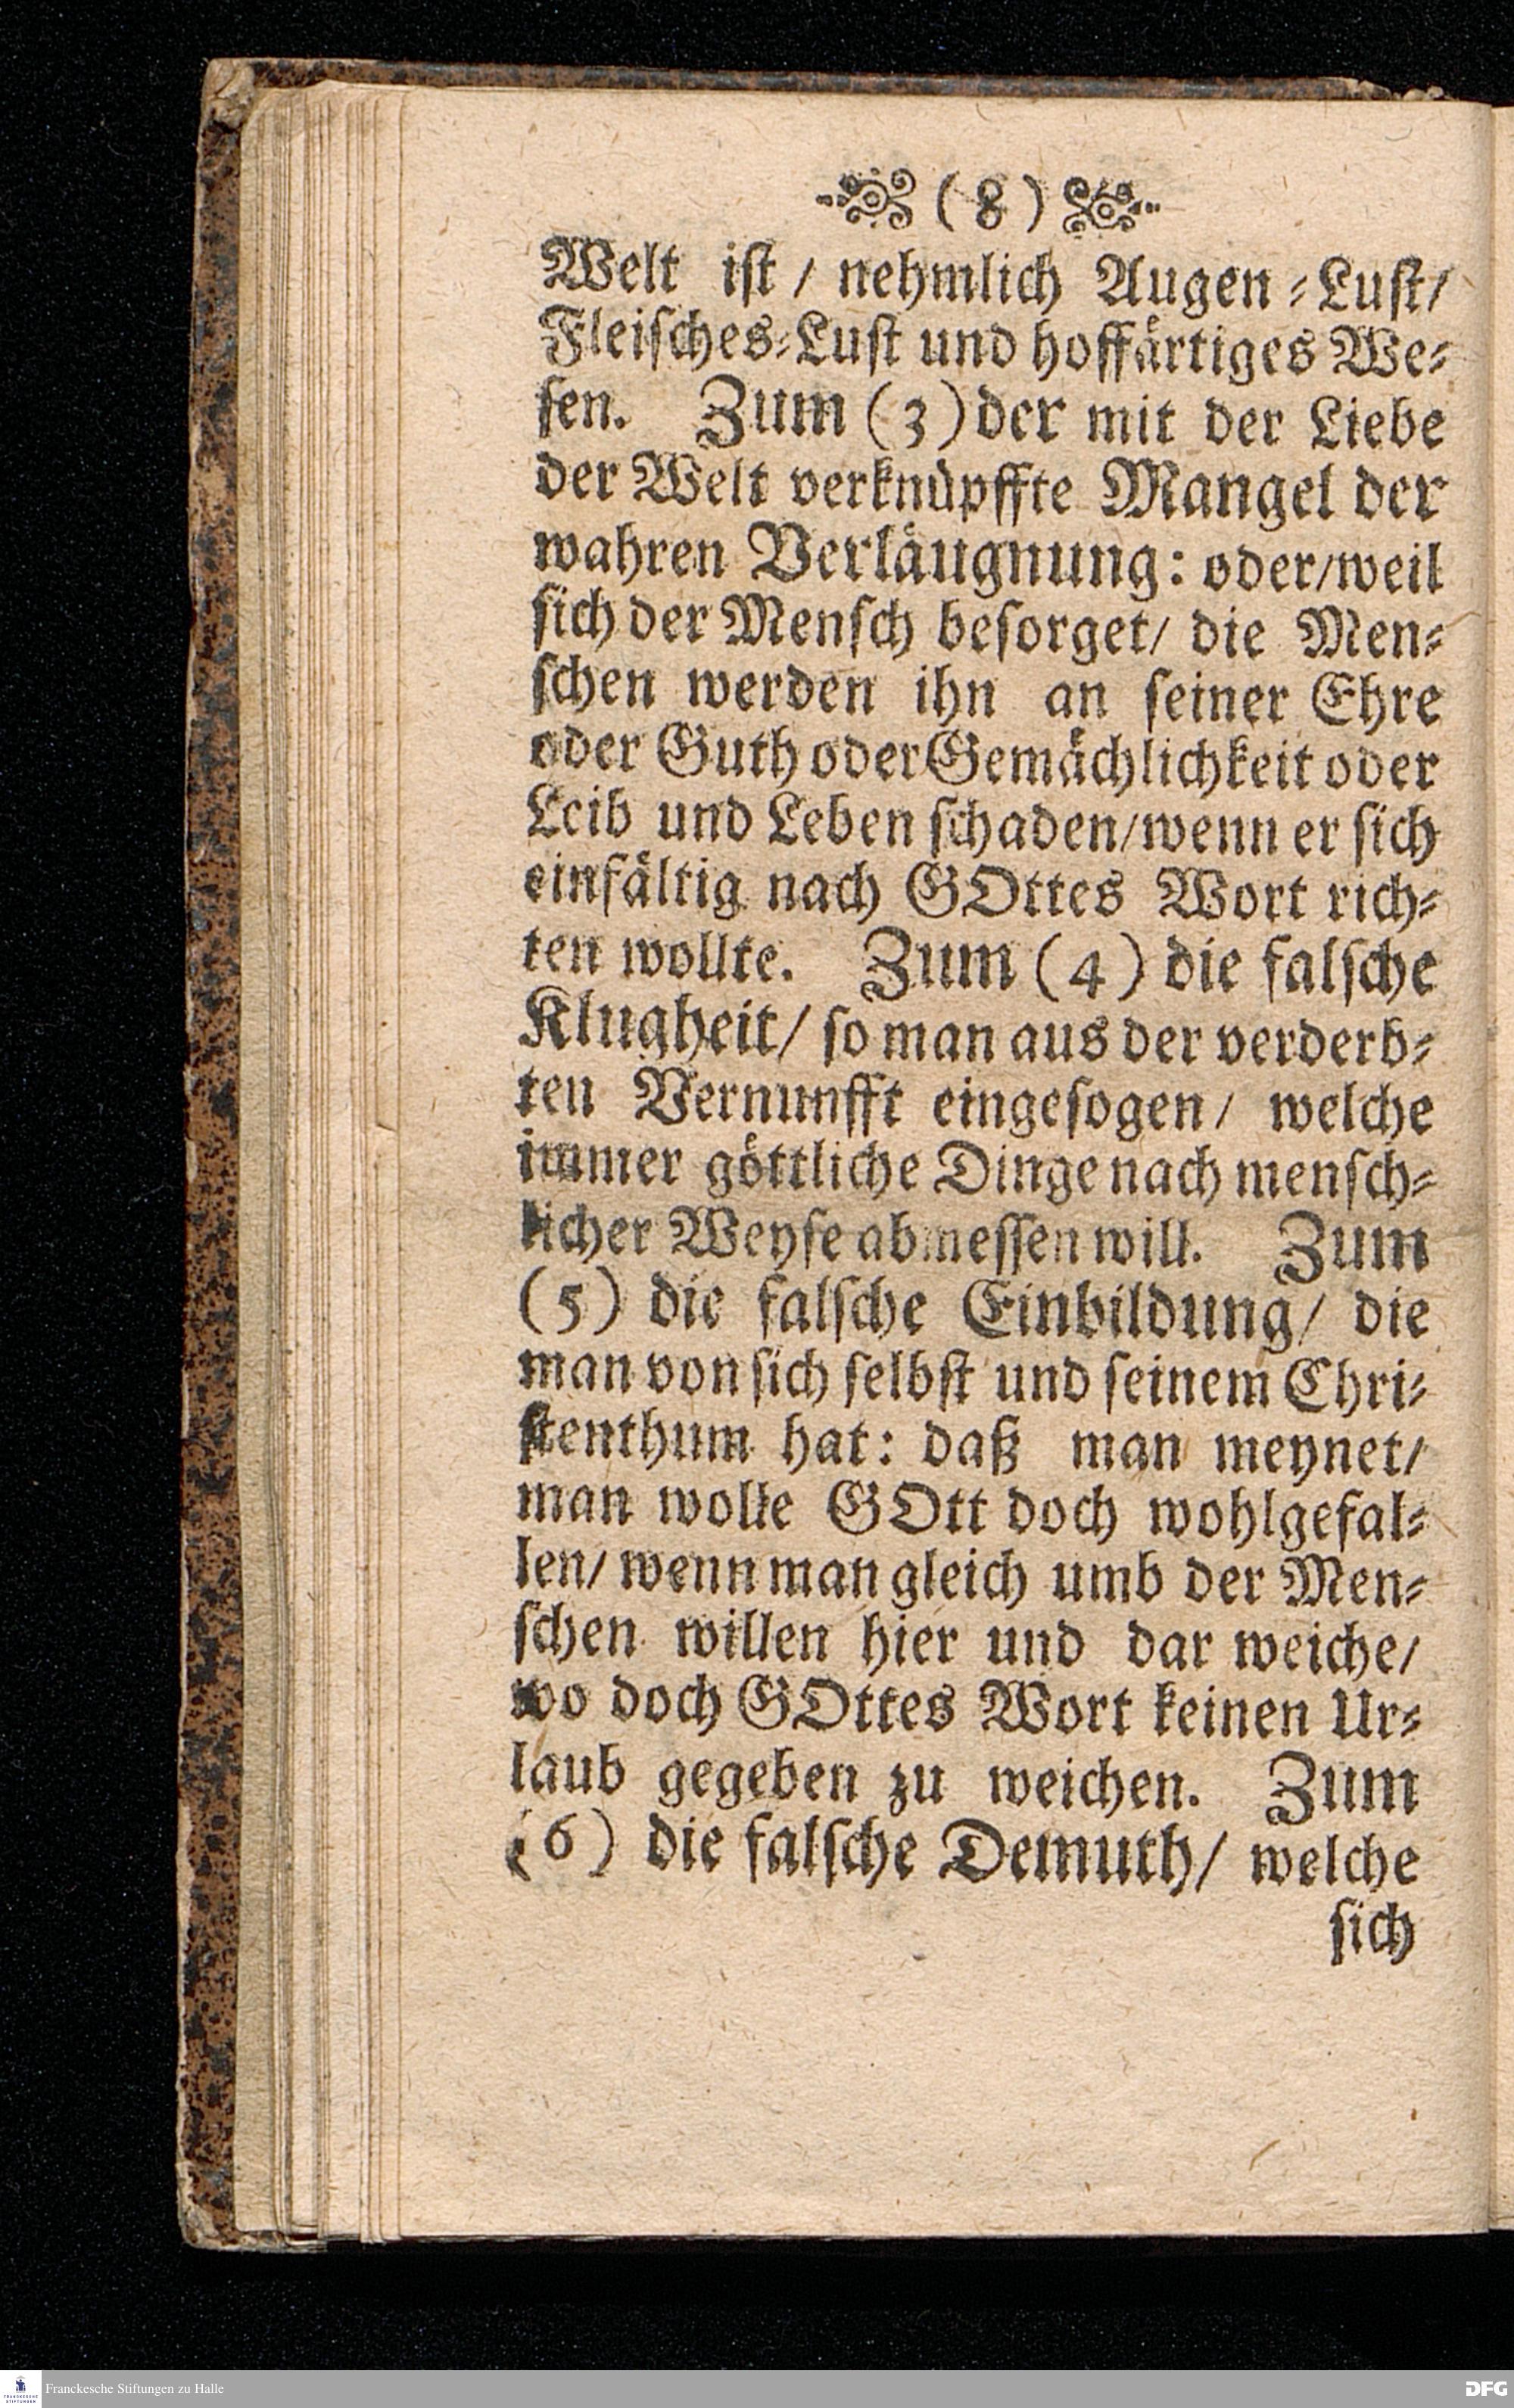 ( 8 )
Welt ist / nehmlich Augen-Lust/
Fleisches-Lust und hoffärtiges We-
sen. Zum (3) der mit der Liebe
der Welt verknüpffte Mangel der
wahren Verläugnung: oder/weil
sich der Mensch besorget/ die Men-
schen werden ihn an seiner Ehre
oder Guth oder Gemächlichkeit oder
Leib und Leben schaden/wenn er sich
einfältig nach GOttes Wort rich-
ten wollte. Zum (4) die falsche
Klugheit/ so man aus der verderb-
ten Vernunfft eingesogen/ welche
immer göttliche Dinge nach mensch-
licher Weyse abmessen will. Zum
(5) die falsche Einbildung/ die
man von sich selbst und seinem Chri-
stenthum hat: daß man meynet/
man wolle GOtt doch wohlgefal-
len/ wenn man gleich umb der Men-
schen willen hier und dar weiche/
wo doch GOttes Wort keinen Ur-
laub gegeben zu weichen. Zum
(6) die falsche Demuth/ welche
sich
FRANCKESCHE STIFTUNGEN
Franckesche Stiftungen zu Halle
DFG